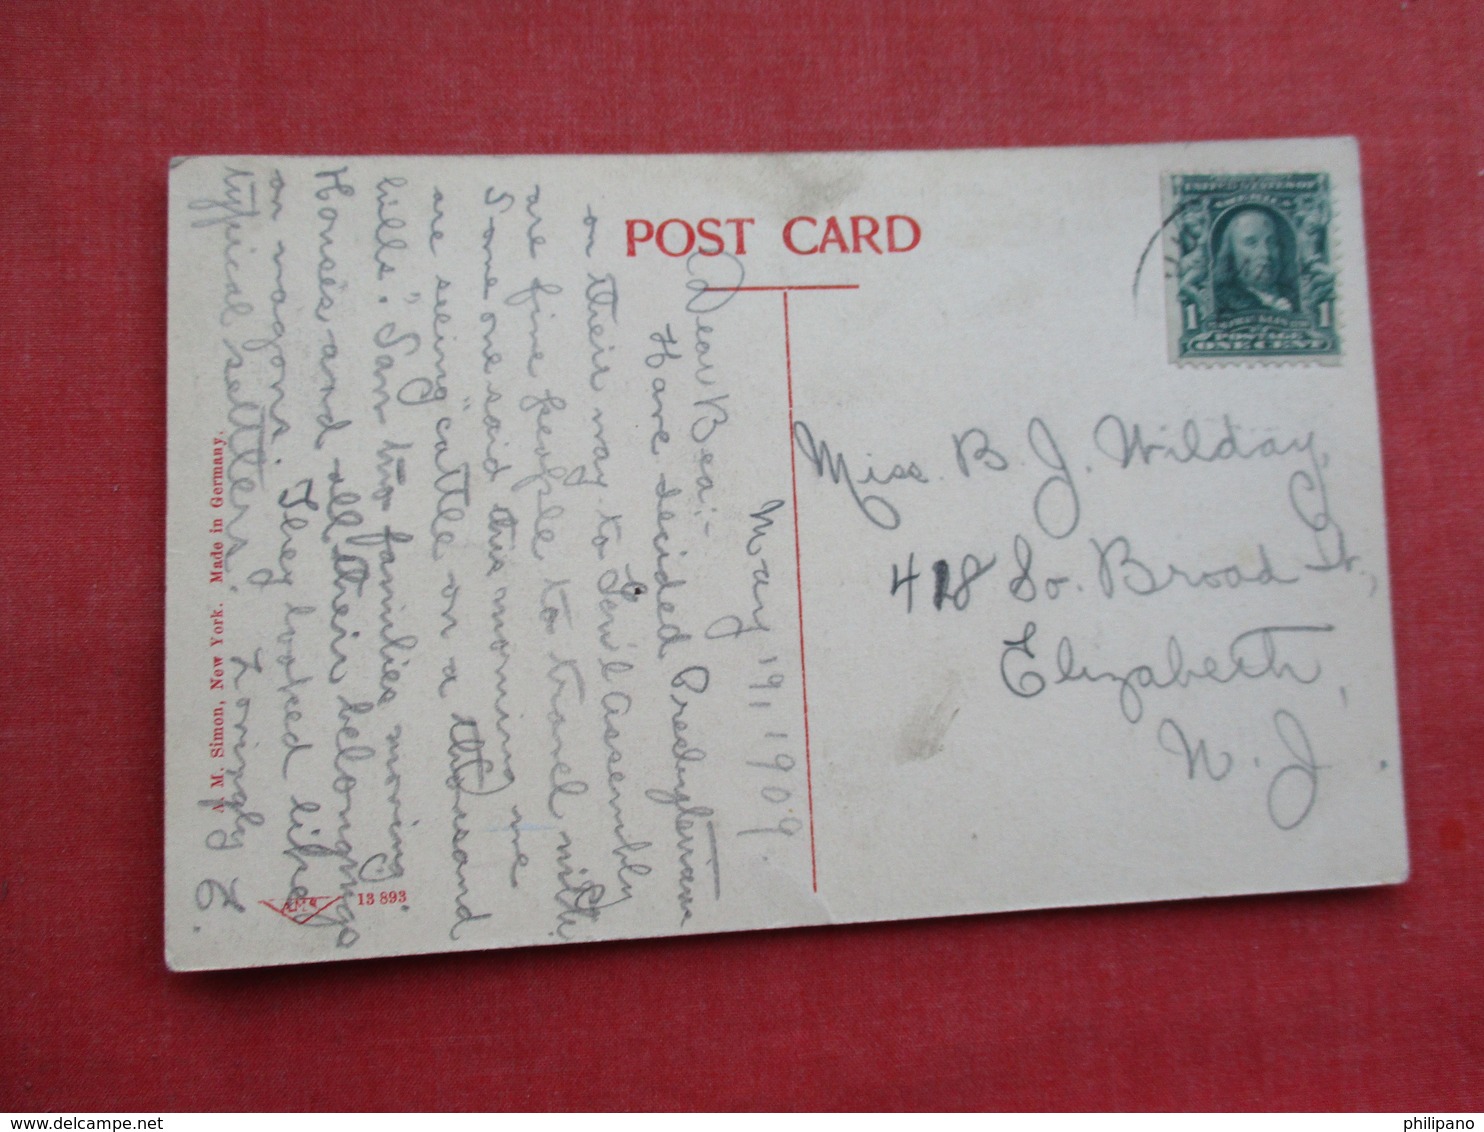 POST CARD
May 19, 1909.
Dear Bea:-
Have decided Presbyterians
on their way to Gen'l Assembly
are fine people to travel with.
Some one said this morning we
are seeing "cattle on a thousand
hills." Saw two families moving.
Horses and all their belongings
on wagons. They looked like
typical settlers. Lovingly E.
A. M. Simon, New York. Made in Germany.
13 893
UNITED STATES OF AMERICA
1 1
POSTAGE
ONE CENT
Miss. B. J. Wilday,
418 So. Broad St.,
Elizabeth,
N. J.
philipano
www.delcampe.net